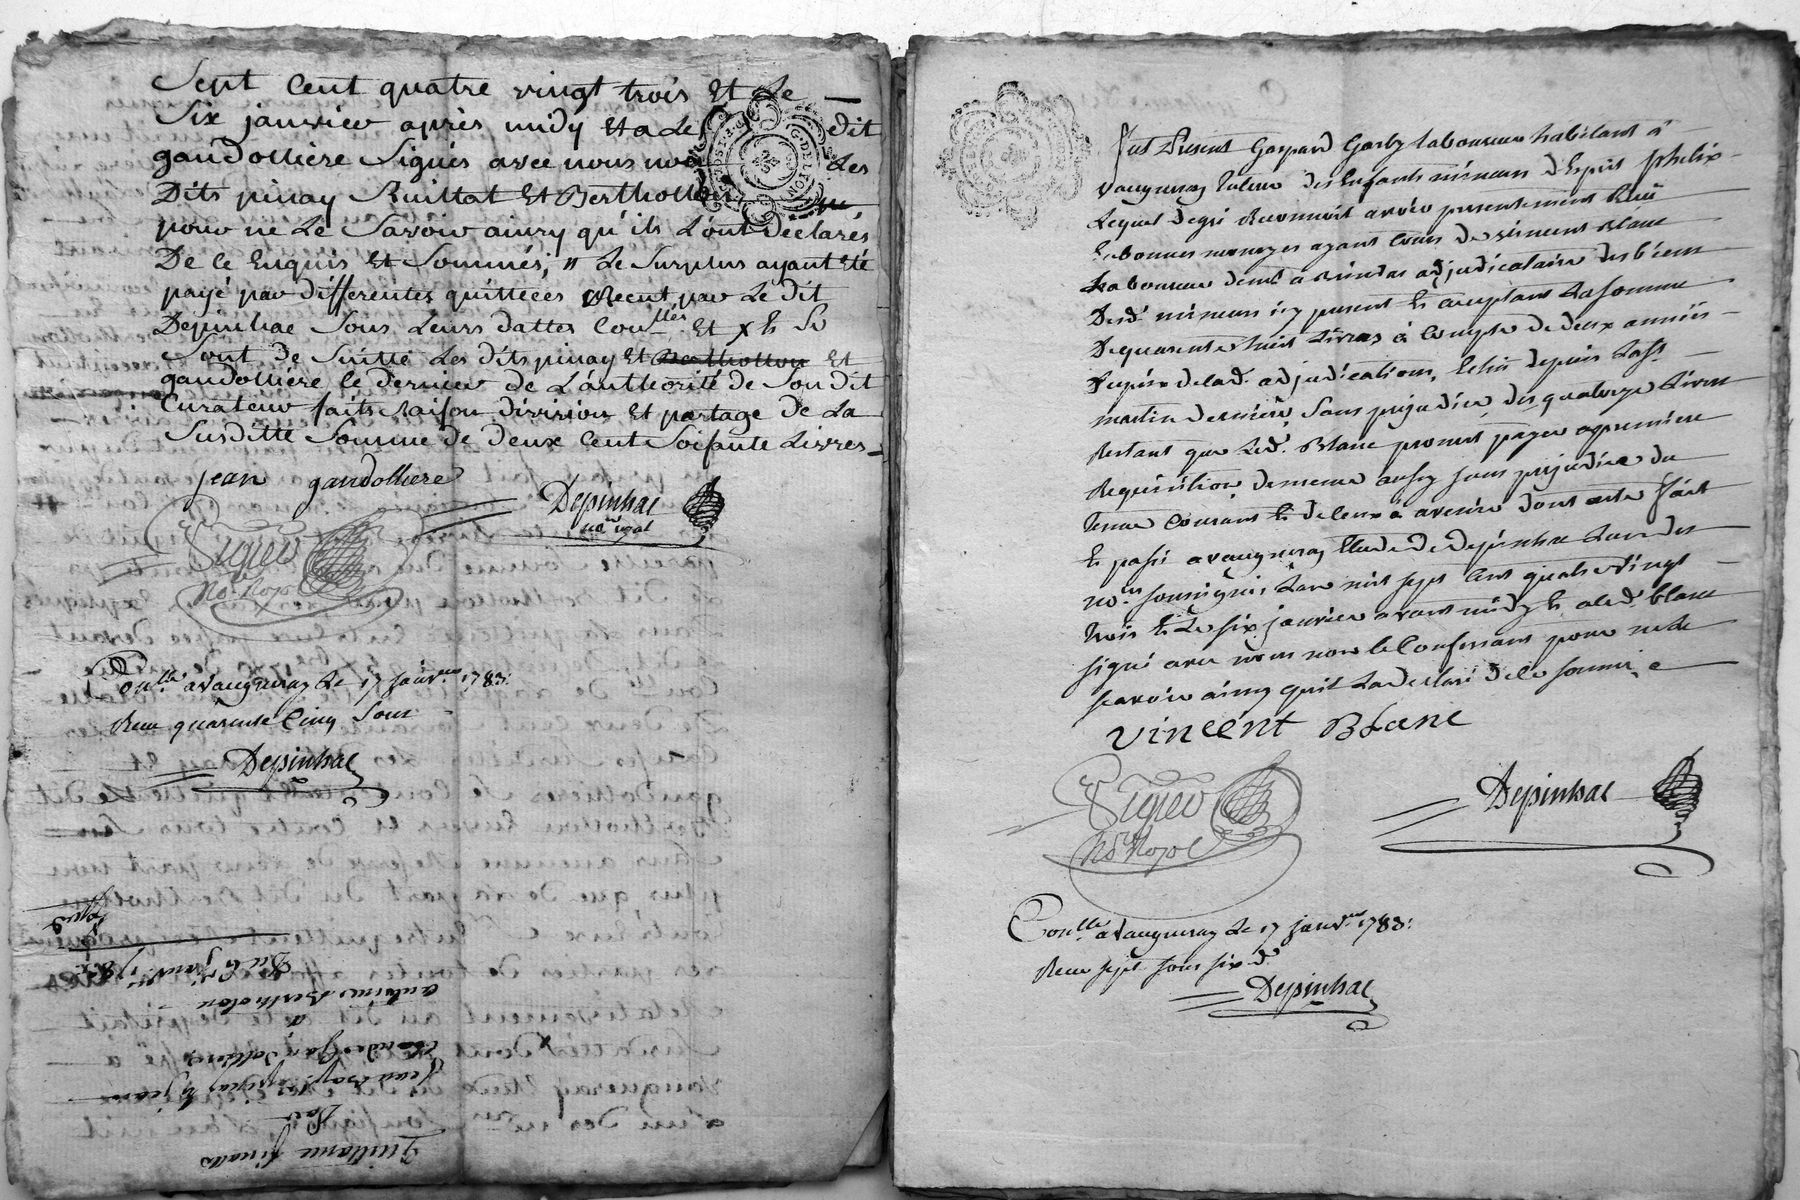 Sept Cent quatre vingt trois Et Le
Six janvier après midy Et a Le dit
gandolliere Signés avec nous non Les
Dits pinay Ruittat Et Bertholton
pour ne Le Savoir ainsy qu'ils L'ont déclarés
De Ce Enquis Et Sommés, Le Surplus ayant Eté
payé par differentes quittces par Le dit
Depinhac Sous Leurs dattes Conllés Et
Sont de Suitte Les dits pinay Et Bertholton Et
gandolliere le dernier de L'authorité de Son dit
Curateur faits Raison division Et partage de La
Susditte Somme de deux Cent Soisante Livres
jean gandolliere
Depinhac
no.re royal
Viguer
No.re Royal
Conllé a Vaugneray Le 17 janv. 1783.
Reçu quarente Cinq Sous
Depinhac
Du 6 janv. 1783
antoine Bertholon
a
Par
Quittance finalle
G. DE LYON
fut Présent Gaspard Garby Laboureur habitant a
Vaugneray tuteur des Enfants mineurs d'Esprit phelix
Lequel de gré Reconnoit avoir presentement Reçu
En bonnes monoyes ayant Cours de vincent Blanc
Laboureur demt a adjudicataire des biens
Desd. mineurs icy present Et acceptant La Somme
De quarente huit Livres à Compte de deux années
Du prix de lad. adjudication, Echûs depuis La St
martin derniere, Sans prejudice des quatorze Livres
Restant que Led. Blanc promet payer a premiere
Requisition, de meme aussy Sans prejudice du
terme Courant Et de Ceux a avenir dont acte fait
Et passé a vaugneray Etude de depinhac L'un des
no.res soussignés L'an mil sept Cent quatre Vingt
trois Et Le six janvier avant midy Et a led. blanc
signé avec nous non le Confessant pour ne Le
scavoir ainsy quil La declaré de Ce sommé
vincent Blanc
Viguer
No.re Royal
Depinhac
Conllé a Vaugneray Le 17 janv. 1783.
Reçu sept sous six d.
Depinhac